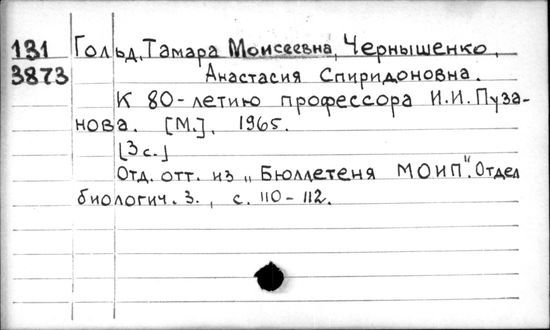 131 Гольд, Тамара Моисеевна, Чернышенко,
3873 Анастасия Спиридоновна.
К 80-летию профессора И.И. Пуза-
нова. [М.], 1965.
[3 с.]
Отд. отт. из „Бюллетеня МОИП". Отдел
биологич. 3., с. 110-112.